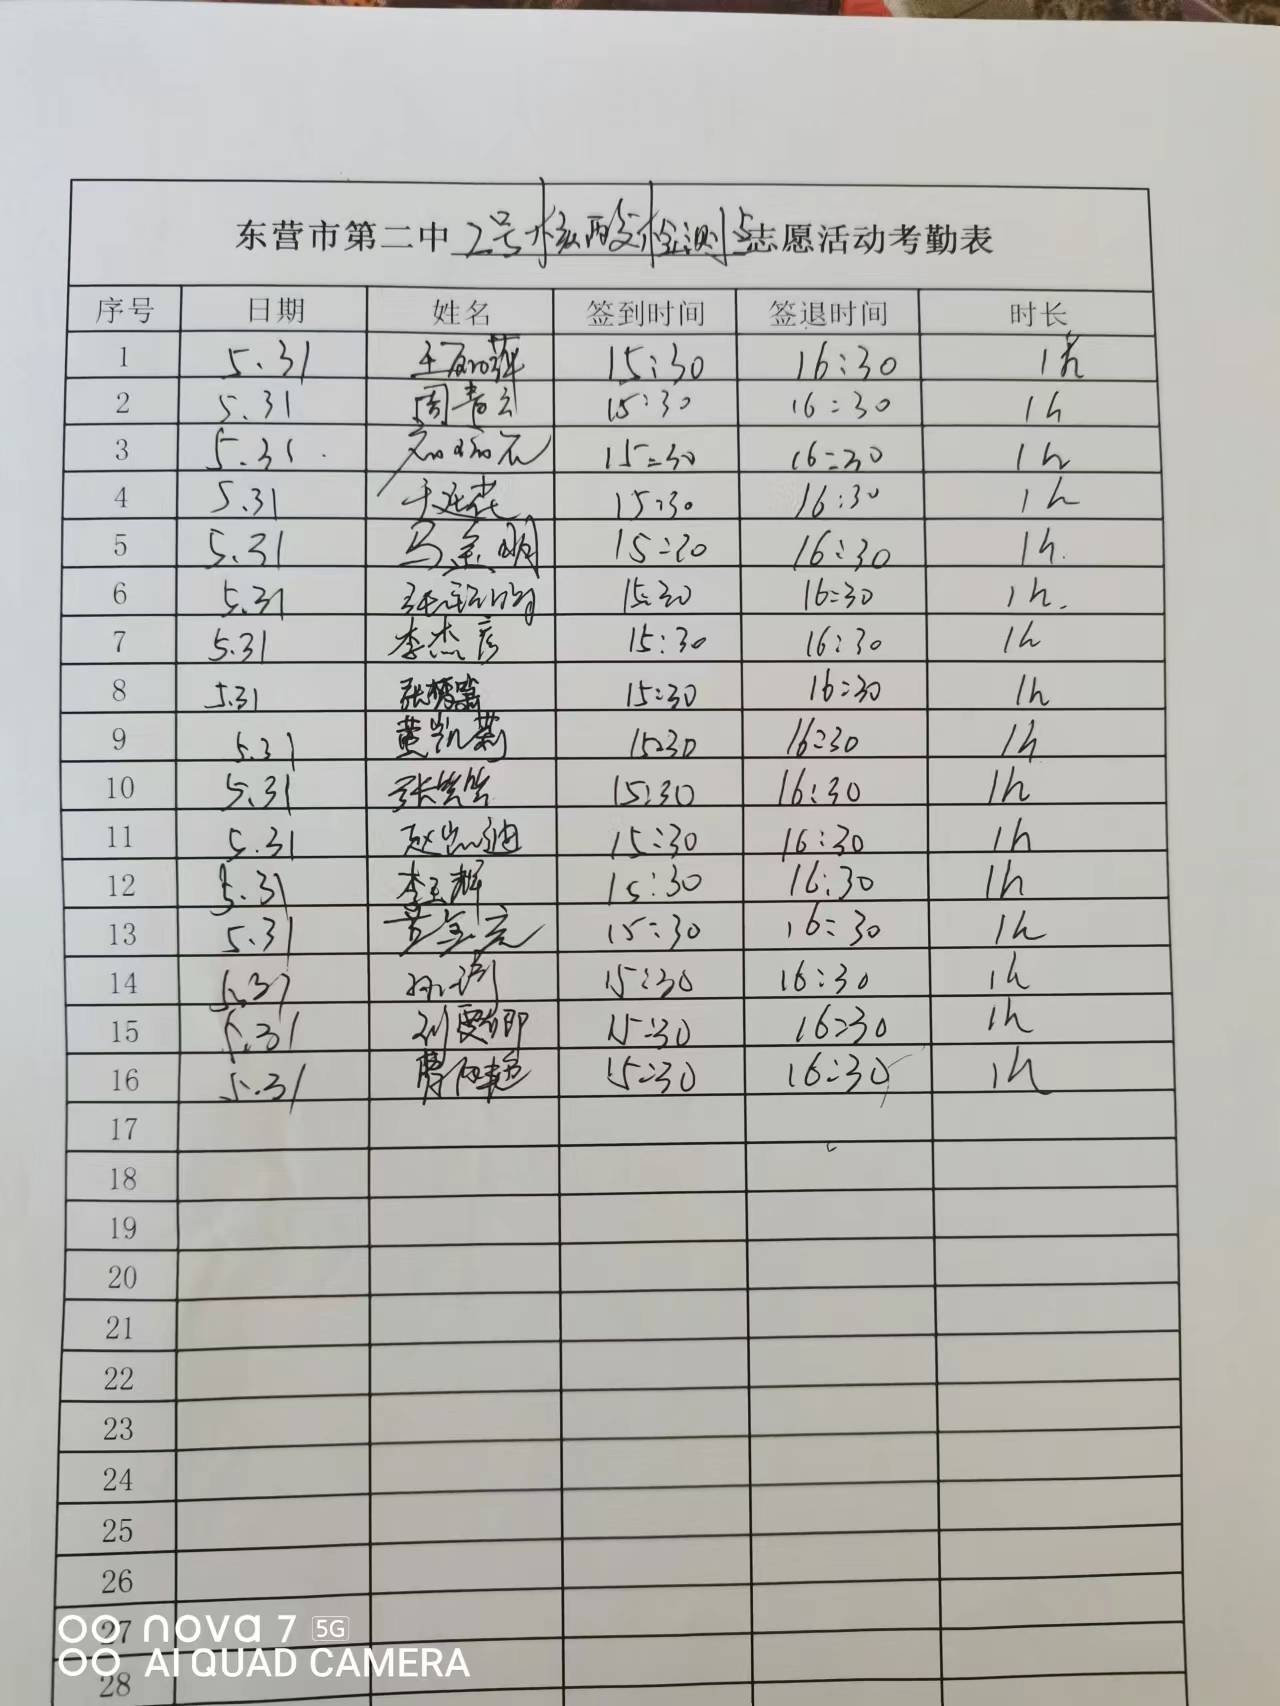 东营市第二中2号核酸检测点志愿活动考勤表
序号 日期 姓名 签到时间 签退时间 时长
1 5.31 15:30 16:30 1h
2 5.31 周青云 15:30 16:30 1h
3 5.31 15:30 16:30 1h
4 5.31 15:30 16:30 1h
5 5.31 马金明 15:30 16:30 1h
6 5.31 15:30 16:30 1h.
7 5.31 李杰彦 15:30 16:30 1h
8 5.31 15:30 16:30 1h
9 5.31 黄凯莉 15:30 16:30 1h
10 5.31 15:30 16:30 1h
11 5.31 赵凯迪 15:30 16:30 1h
12 5.31 李玉辉 15:30 16:30 1h
13 5.31 黄金亮 15:30 16:30 1h
14 5.31 15:30 16:30 1h
15 5.31 15:30 16:30 1h
16 5.31 15:30 16:30 1h
17
18
19
20
21
22
23
24
25
26
27
28
nova 7 5G
AI QUAD CAMERA